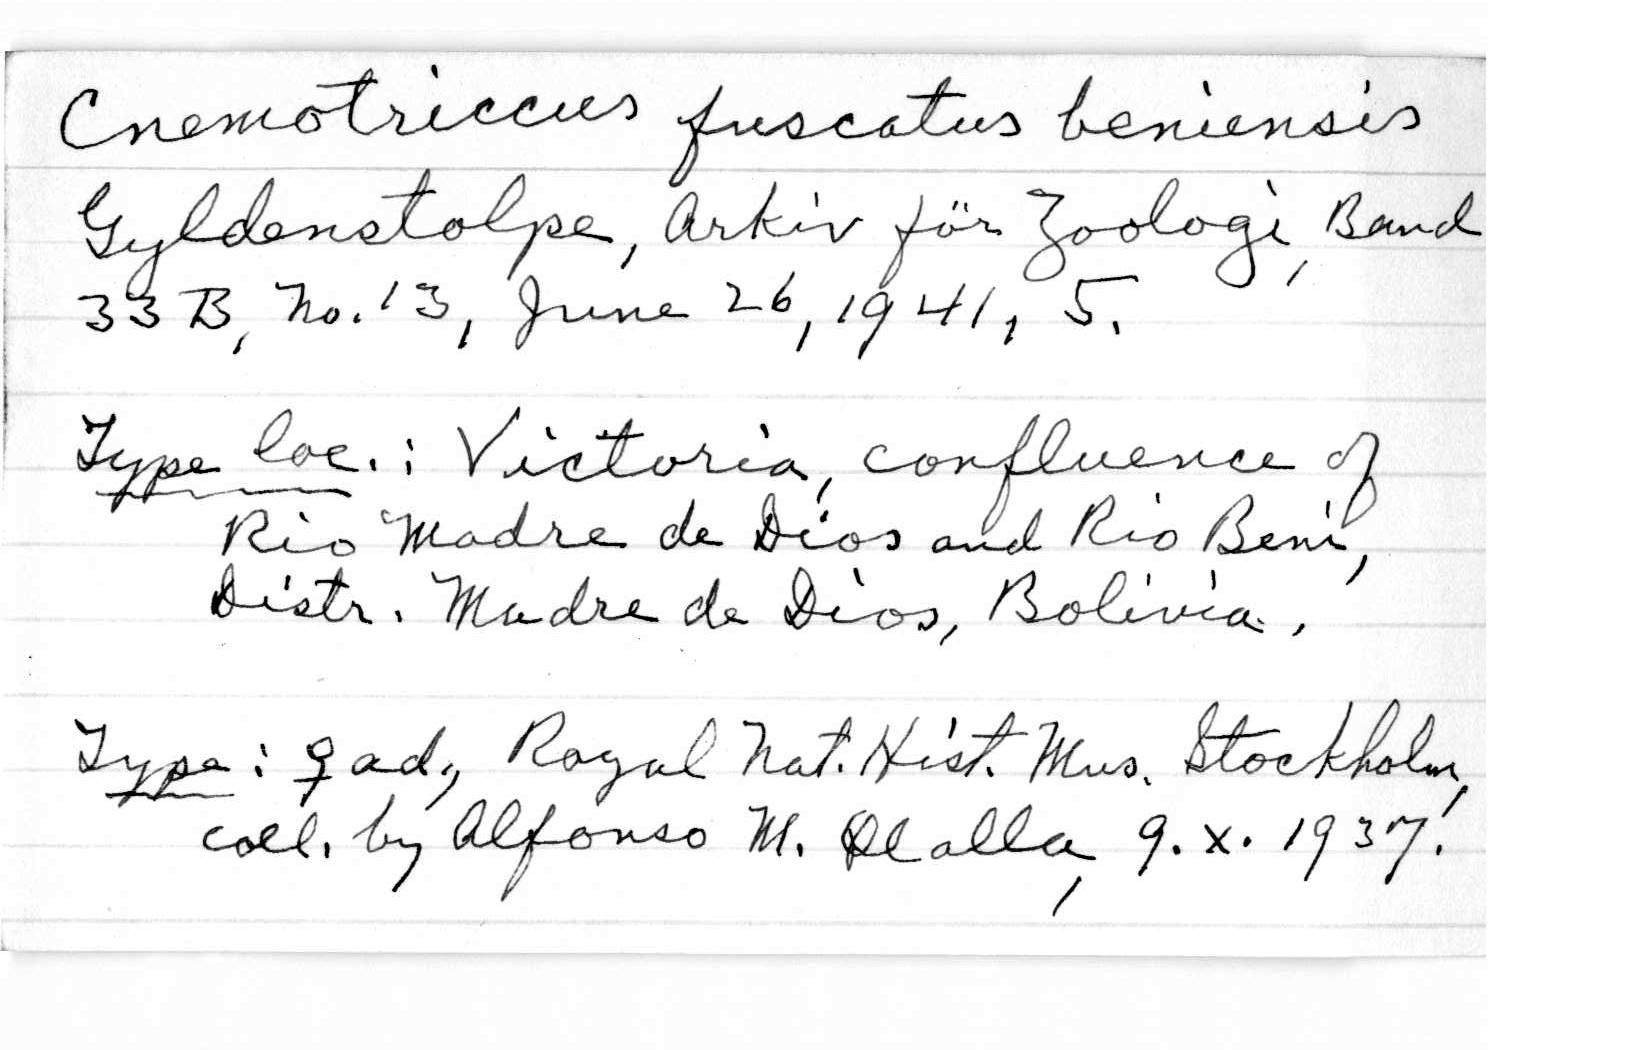 Cnemotriccus fuscatus beniensis
Gyldenstolpe, Arkiv för Zoologi, Band
33B, No. 13, June 26, 1941, 5.
Type loc.: Victoria, confluence of
Rio Madre de Dios and Rio Beni,
Distr. Madre de Dios, Bolivia.
Type: ♀ ad., Royal Nat. Hist. Mus. Stockholm,
coll. by Alfonso M. Olalla, 9.X.1937.